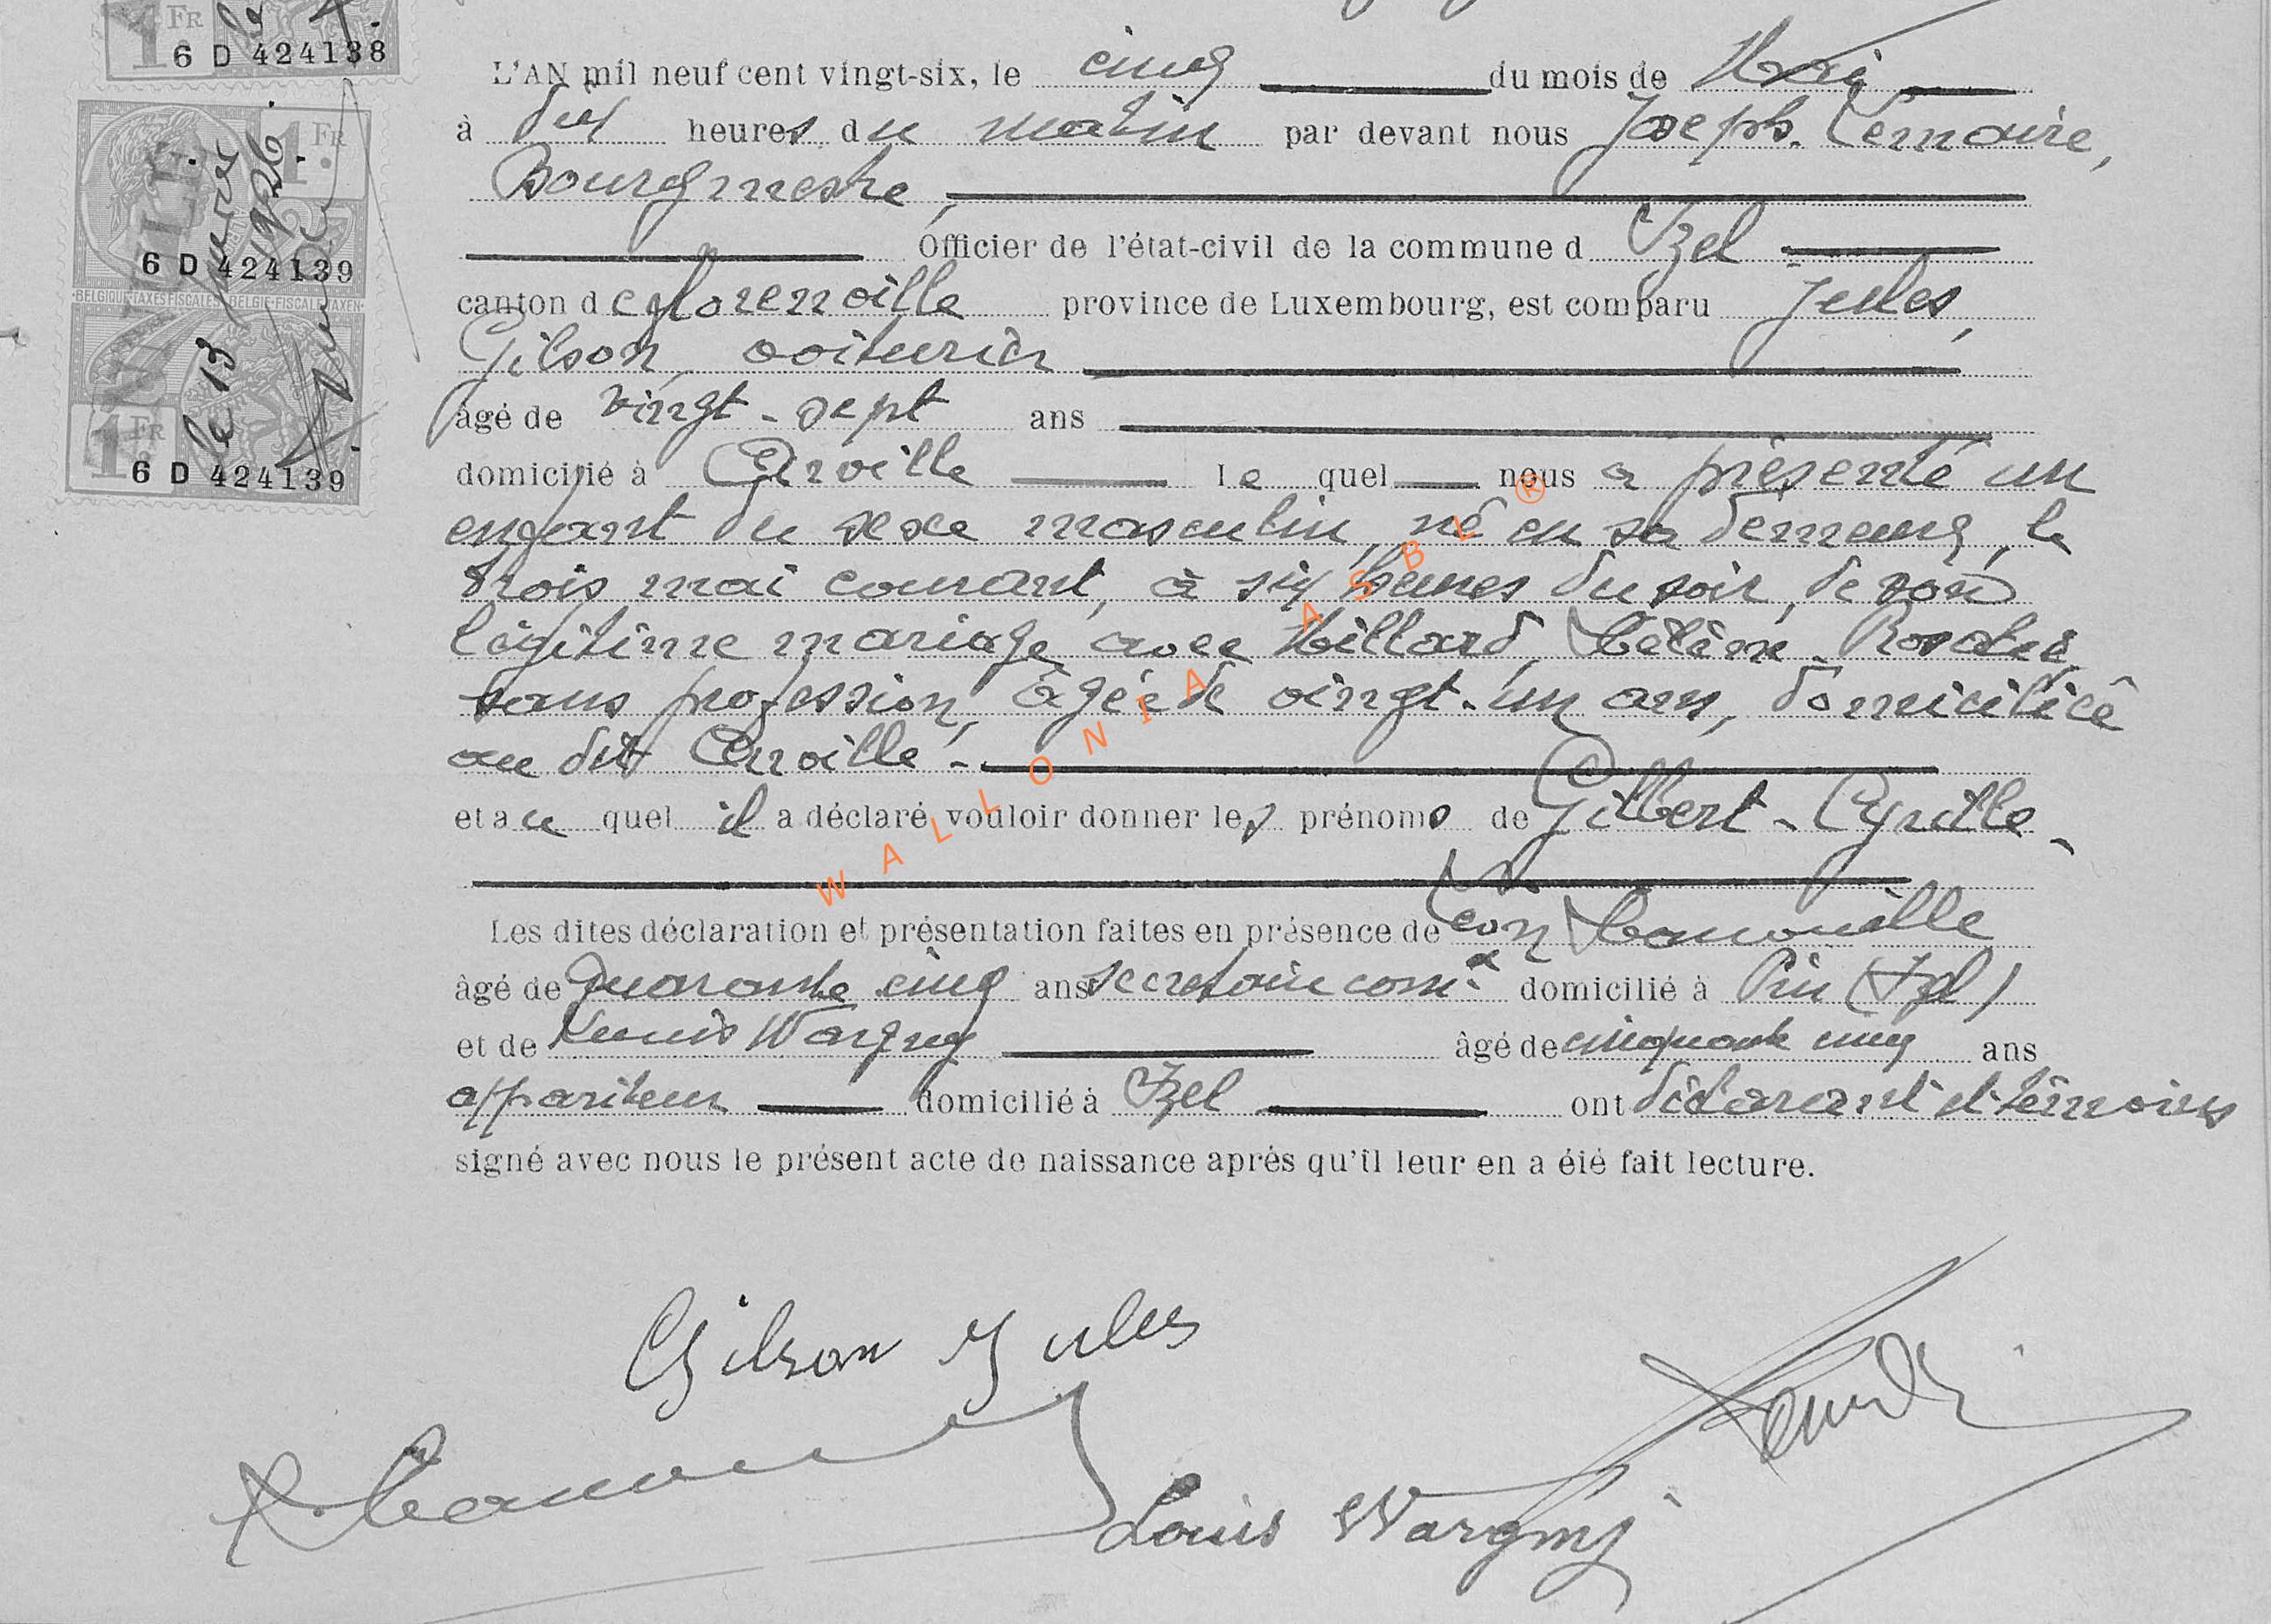 1 FR
6 D 424138
1 FR
6 D 424139
BELGIQUE-TAXES FISCALES BELGIE-FISCALE TAXEN
1 FR
6 D 424139
le 13
1926
L'AN mil neuf cent vingt-six, le cinq du mois de Mai
à dix heures du matin par devant nous Joseph Lemaire,
Bourgmestre,
Officier de l'état-civil de la commune d Izel
canton de Florenville province de Luxembourg, est comparu Jules,
Gilson, voiturier
âgé de vingt-sept ans
domicilié à le quel nous a présenté un
enfant du sexe masculin, né en sa demeure, le
trois mai courant, à six heures du soir, de son
légitime mariage avec Hillard, Hélène-Rosalie,
sans profession, âgée de vingt-un ans, domiciliée
au dit
et au quel il a déclaré vouloir donner les prénoms de Gilbert-Cyrille-
Les dites déclaration et présentation faites en présence de Léon
âgé de quarante cinq ans secrétaire comal domicilié à Pin (Izel)
et de Louis Wargny âgé de cinquante cinq ans
appariteur domicilié à Izel ont déclarant et témoins
signé avec nous le présent acte de naissance après qu'il leur en a été fait lecture.
Gilson Jules
Louis Wargny
WALLONIA ASBL ®